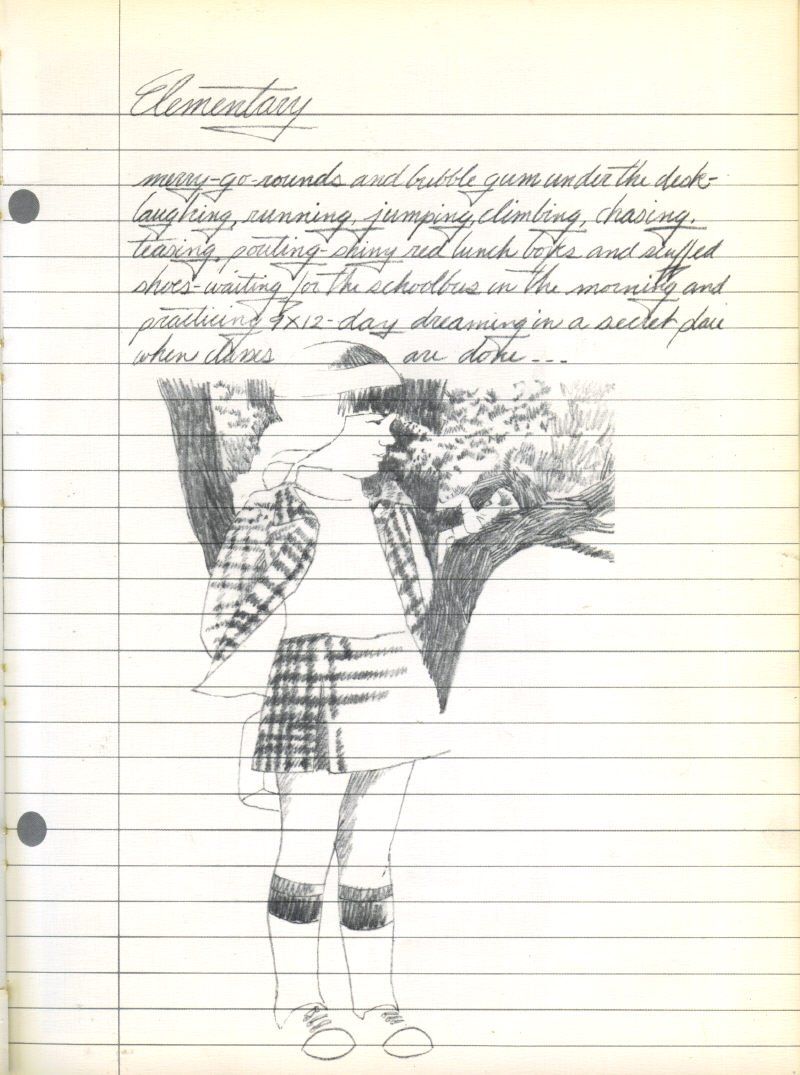 Elementary
merry-go-rounds and bubble gum under the desk-
laughing, running, jumping, climbing, chasing,
teasing, pouting-shiny red lunch boxes and scuffed
shoes-waiting for the schoolbus in the morning and
practicing 9x12-day dreaming in a secret place
when classes are done---